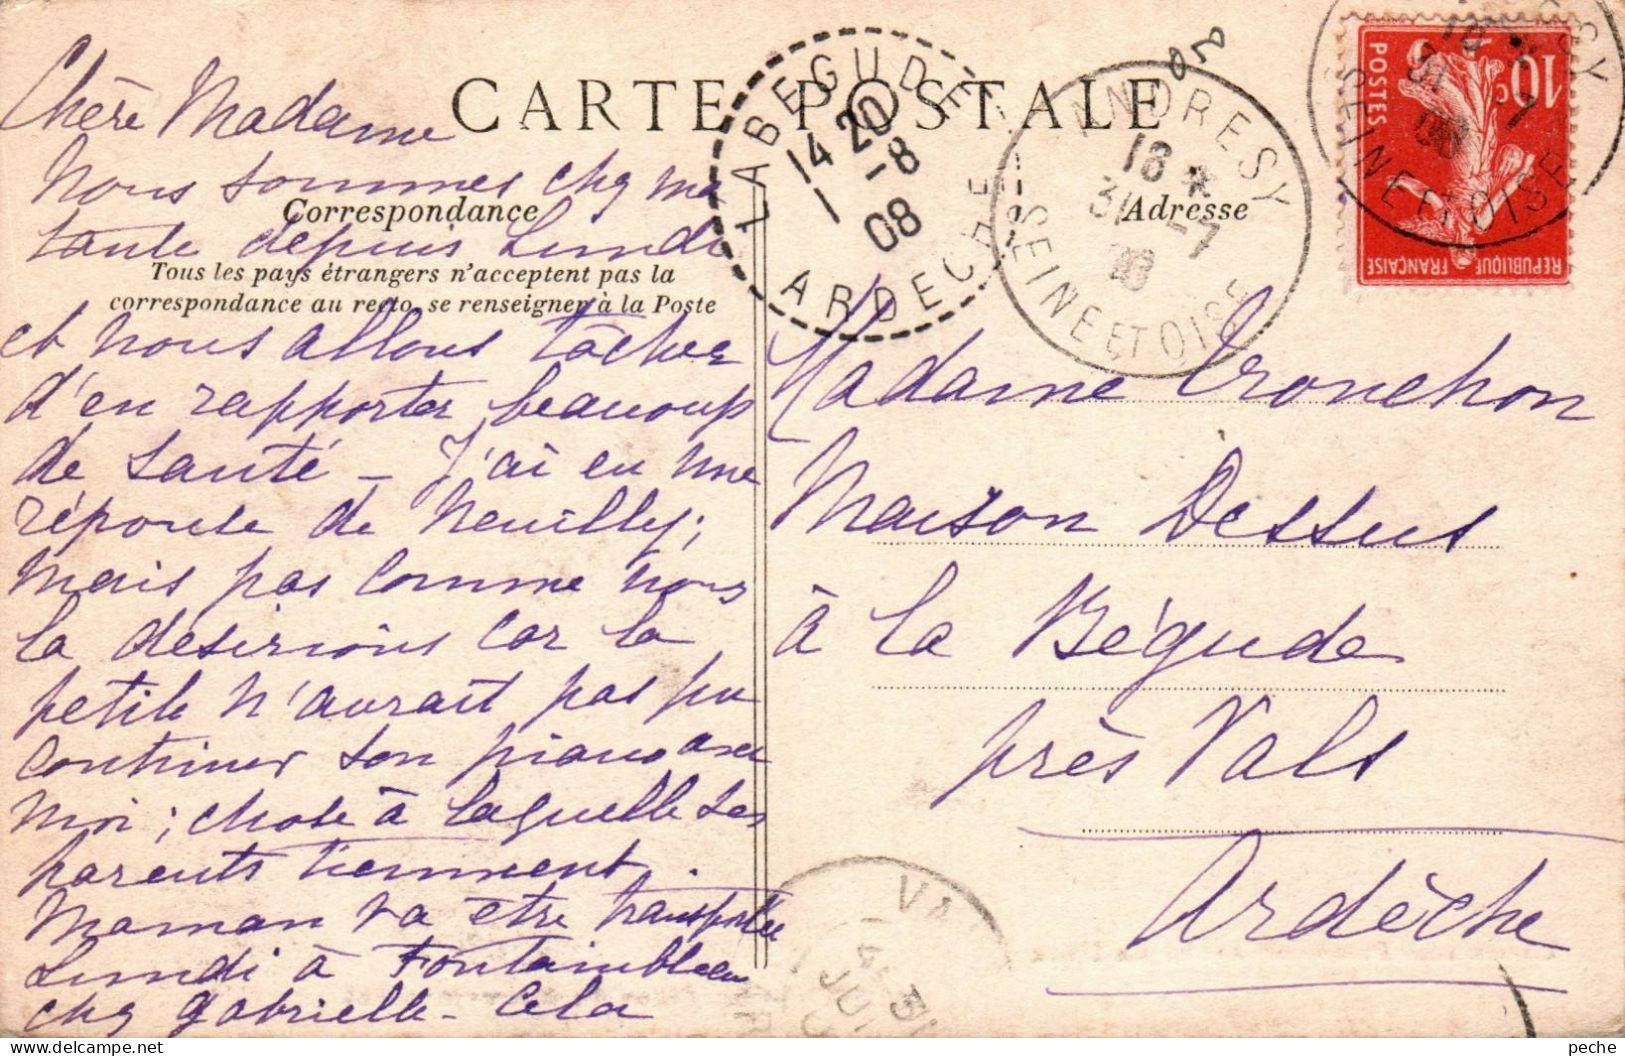 CARTE POSTALE
Correspondance
Adresse
Tous les pays étrangers n'acceptent pas la
correspondance au recto, se renseigner à la Poste
Chère Madame
Nous sommes chez ma
tante depuis Lundi
et nous allons tâcher
d'en rapporter beaucoup
de santé – J'ai eu une
réponse de Neuilly;
mais pas comme nous
la desirions car la
petite n'aurait pas pu
continuer son piano avec
moi; chose à laquelle ses
parents tiennent.
Maman va être transportée
Lundi à Fontainebleau
chez Gabrielle – Cela
Madame Tronchon
Maison Dessus
à la Bégude
près Vals
Ardèche
LABEGUDE
14 20
1 -8
08
ARDECHE
ANDRESY
18 *
31 -7
08
SEINE ET OISE
POSTES
10c
REPUBLIQUE FRANÇAISE
SY
18 *
31 -7
08
SEINE ET OISE
VA
31
peche